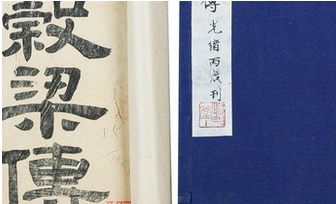 穀梁傳
光緒丙戌刊